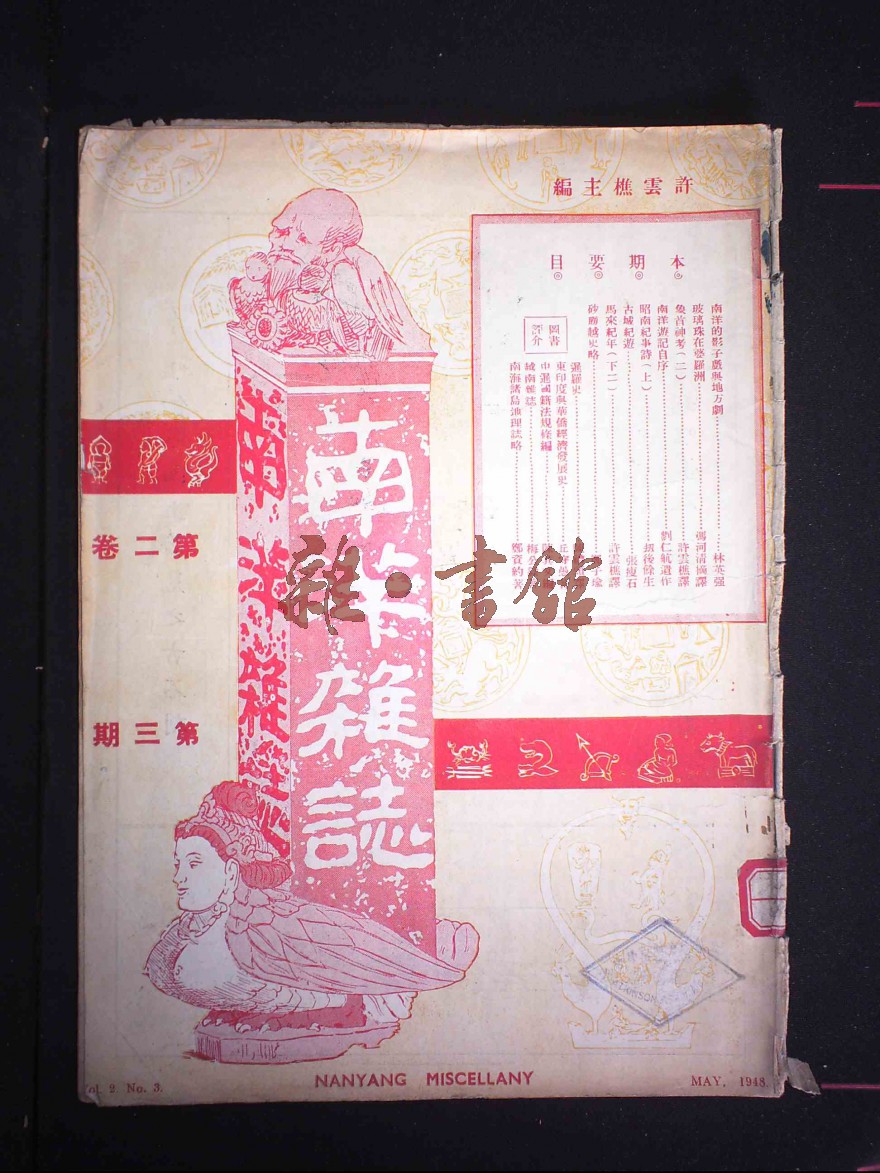 許雲樵主編
本期要目
南洋的影子戲與地方劇……林英强
玻璃珠在婆羅洲……馮河清滌譯
象首神考(二)……許雲樵譯
南洋遊記自序……劉仁航遺作
昭南紀事詩(上)……劫後餘生
古城紀遊……張瘦石
馬來紀年(下二)……許雲樵譯
砂朥越史略
圖書評介
暹羅史
東印度與華僑經濟發展史
中暹國籍法規條編
城南雜誌
南海諸島地理誌略……鄭資約著
南洋雜誌
南洋雜誌
第二卷
第三期
雜·書館
Vol. 2 No. 3.
NANYANG MISCELLANY
MAY, 1948.